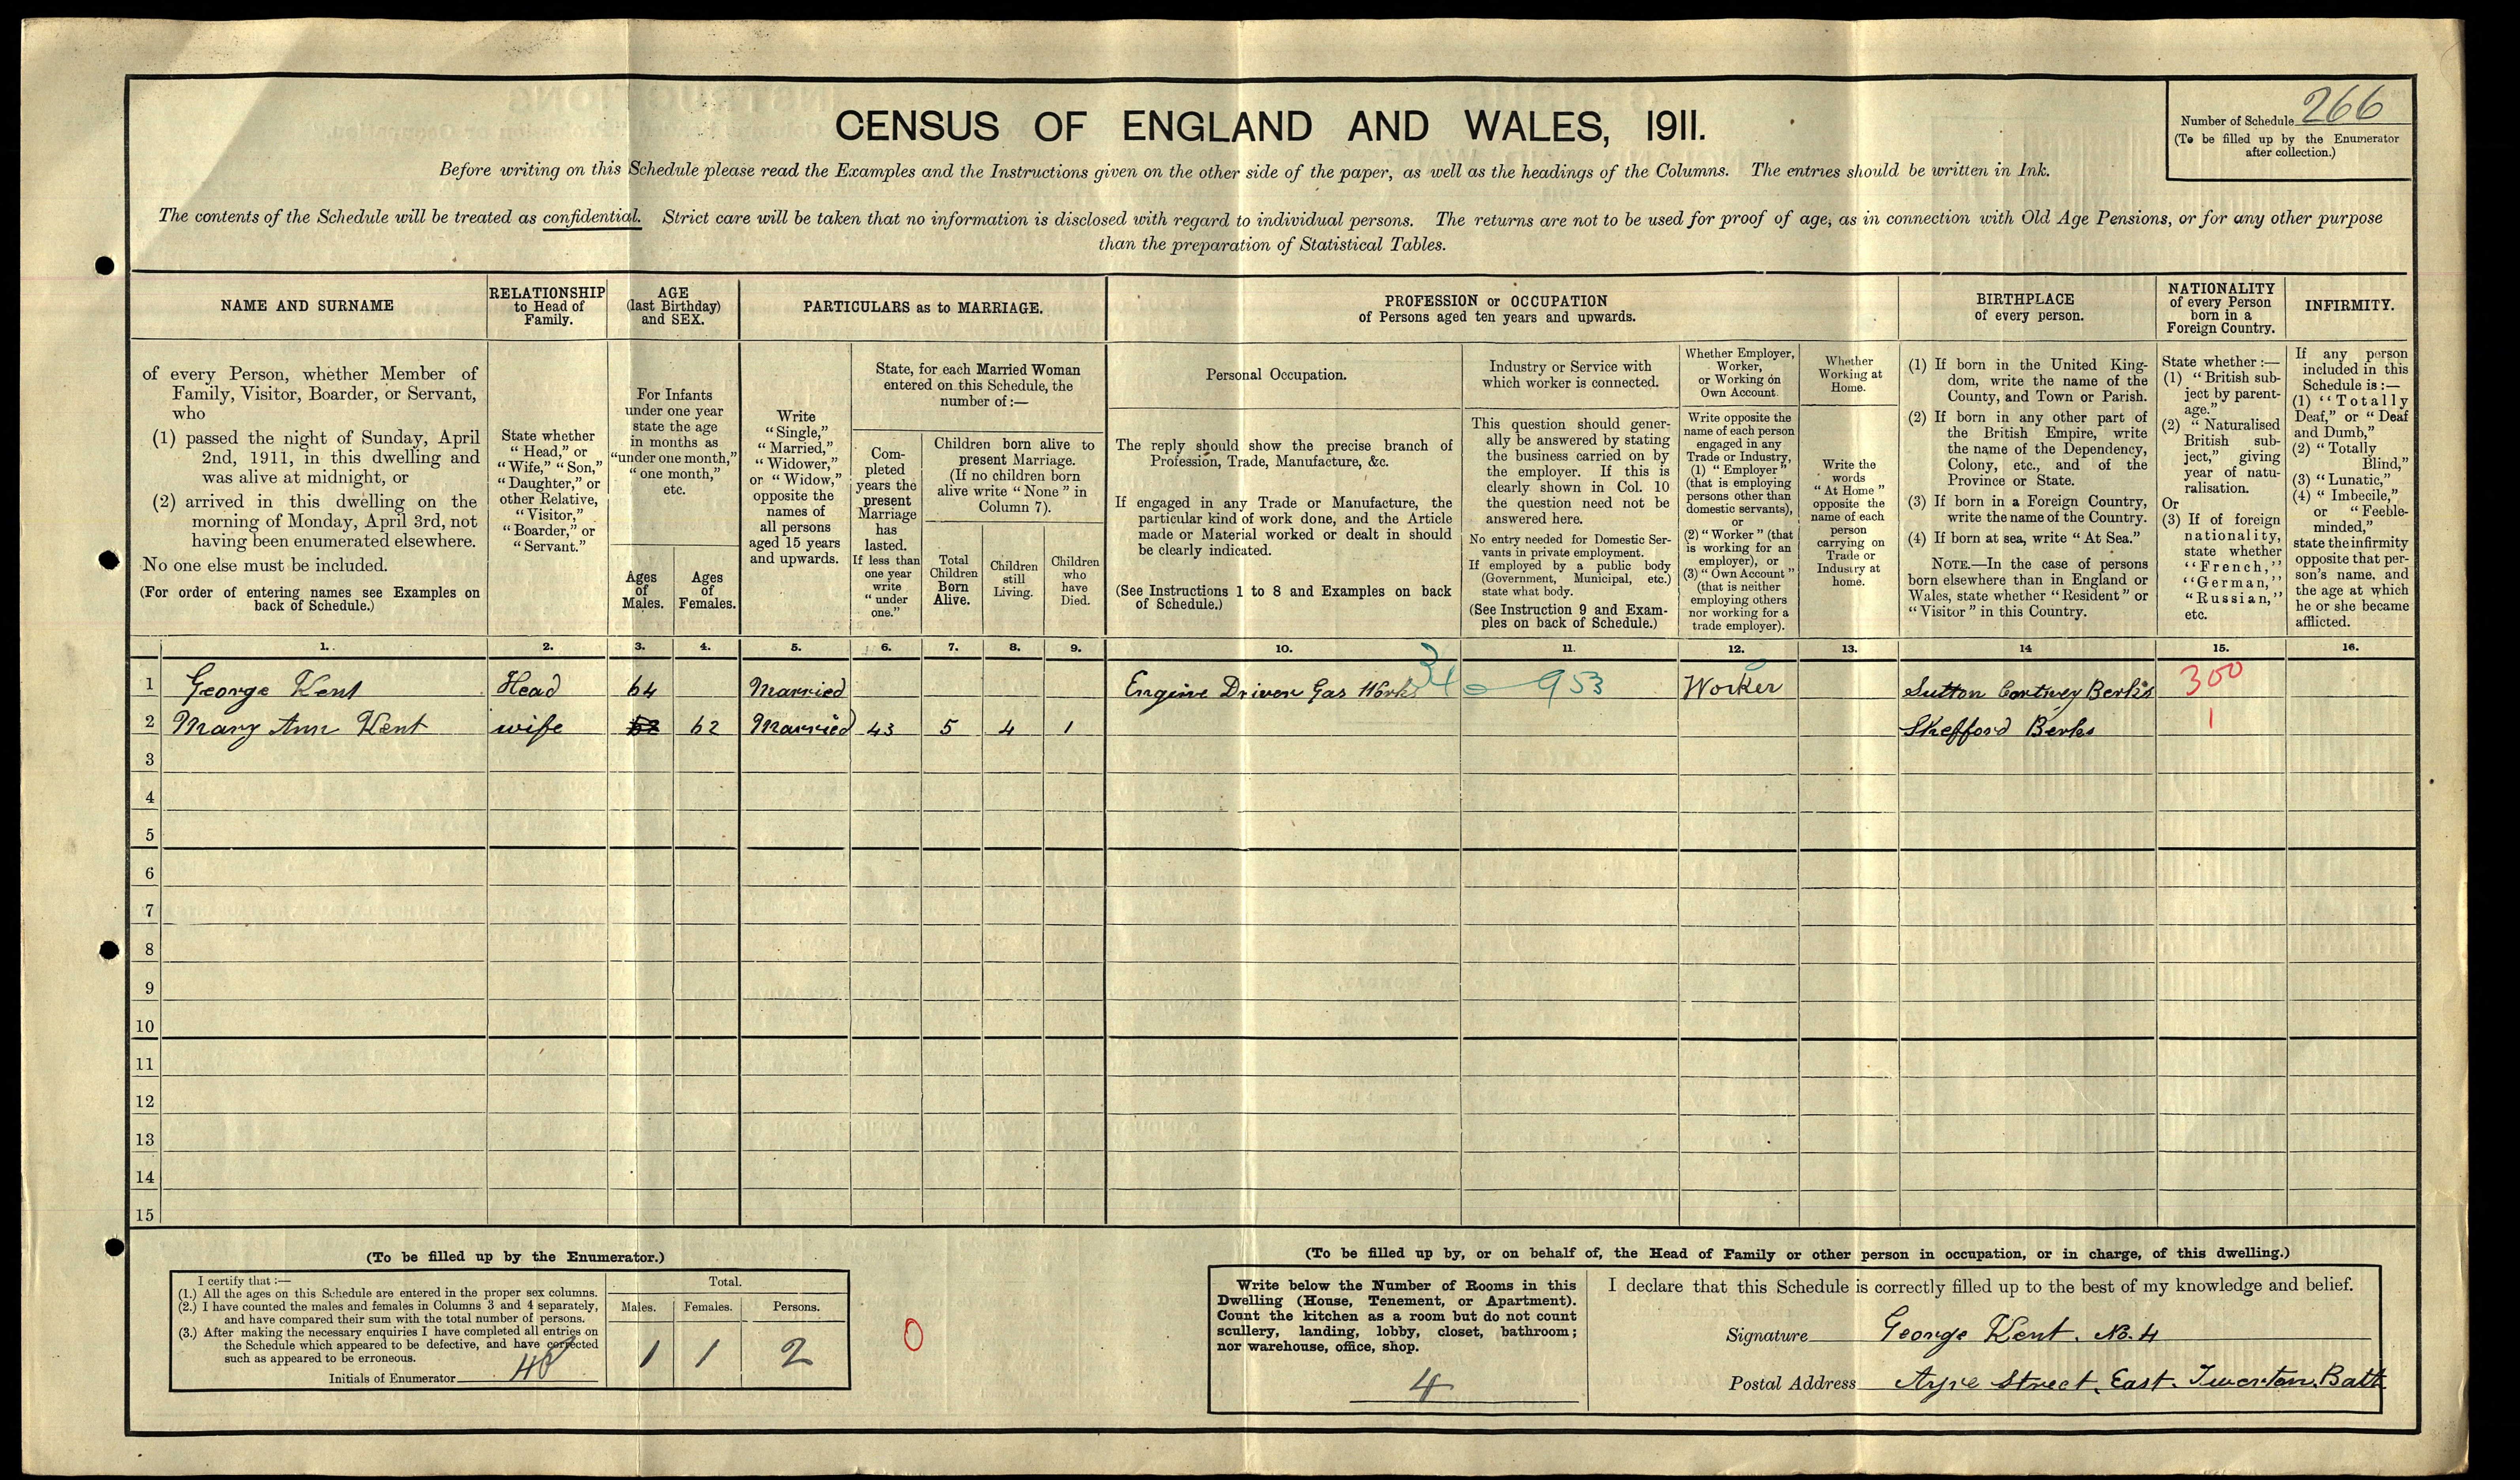 CENSUS OF ENGLAND AND WALES, 1911.
Number of Schedule 266
(To be filled up by the Enumerator
after collection.)
Before writing on this Schedule please read the Examples and the Instructions given on the other side of the paper, as well as the headings of the Columns. The entries should be written in Ink.
The contents of the Schedule will be treated as confidential. Strict care will be taken that no information is disclosed with regard to individual persons. The returns are not to be used for proof of age, as in connection with Old Age Pensions, or for any other purpose
than the preparation of Statistical Tables.
NAME AND SURNAME
of every Person, whether Member of
Family, Visitor, Boarder, or Servant,
who
(1) passed the night of Sunday, April
2nd, 1911, in this dwelling and
was alive at midnight, or
(2) arrived in this dwelling on the
morning of Monday, April 3rd, not
having been enumerated elsewhere.
No one else must be included.
(For order of entering names see Examples on
back of Schedule.)
RELATIONSHIP
to Head of
Family.
State whether
"Head," or
"Wife," "Son,"
"Daughter," or
other Relative,
"Visitor,"
"Boarder," or
"Servant."
AGE
(last Birthday)
and SEX.
For Infants
under one year
state the age
in months as
"under one month,"
"one month,"
etc.
Ages
of
Males.
Ages
of
Females.
PARTICULARS as to MARRIAGE.
Write
"Single,"
"Married,"
"Widower,"
or "Widow,"
opposite the
names of
all persons
aged 15 years
and upwards.
State, for each Married Woman
entered on this Schedule, the
number of:—
Com-
pleted
years the
present
Marriage
has
lasted.
If less than
one year
write
"under
one."
Children born alive to
present Marriage.
(If no children born
alive write "None" in
Column 7).
Total
Children
Born
Alive.
Children
still
Living.
Children
who
have
Died.
PROFESSION or OCCUPATION
of Persons aged ten years and upwards.
Personal Occupation.
The reply should show the precise branch of
Profession, Trade, Manufacture, &c.
If engaged in any Trade or Manufacture, the
particular kind of work done, and the Article
made or Material worked or dealt in should
be clearly indicated.
(See Instructions 1 to 8 and Examples on back
of Schedule.)
Industry or Service with
which worker is connected.
This question should gener-
ally be answered by stating
the business carried on by
the employer. If this is
clearly shown in Col. 10
the question need not be
answered here.
No entry needed for Domestic Ser-
vants in private employment.
If employed by a public body
(Government, Municipal, etc.)
state what body.
(See Instruction 9 and Exam-
ples on back of Schedule.)
Whether Employer,
Worker,
or Working on
Own Account.
Write opposite the
name of each person
engaged in any
Trade or Industry,
(1) "Employer"
(that is employing
persons other than
domestic servants),
or
(2) "Worker" (that
is working for an
employer), or
(3) "Own Account"
(that is neither
employing others
nor working for a
trade employer).
Whether
Working at
Home.
Write the
words
"At Home"
opposite the
name of each
person
carrying on
Trade or
Industry at
home.
BIRTHPLACE
of every person.
(1) If born in the United King-
dom, write the name of the
County, and Town or Parish.
(2) If born in any other part of
the British Empire, write
the name of the Dependency,
Colony, etc., and of the
Province or State.
(3) If born in a Foreign Country,
write the name of the Country.
(4) If born at sea, write "At Sea."
NOTE.—In the case of persons
born elsewhere than in England or
Wales, state whether "Resident" or
"Visitor" in this Country.
NATIONALITY
of every Person
born in a
Foreign Country.
State whether:—
(1) "British sub-
ject by parent-
age."
(2) "Naturalised
British sub-
ject," giving
year of natu-
ralisation.
Or
(3) If of foreign
nationality,
state whether
"French,"
"German,"
"Russian,"
etc.
INFIRMITY.
If any person
included in this
Schedule is:—
(1) "Totally
Deaf," or "Deaf
and Dumb,"
(2) "Totally
Blind,"
(3) "Lunatic,"
(4) "Imbecile,"
or "Feeble-
minded,"
state the infirmity
opposite that per-
son's name, and
the age at which
he or she became
afflicted.
1. 2. 3. 4. 5. 6. 7. 8. 9. 10. 11. 12. 13. 14 15. 16.
1 George Kent Head 64 Married Engine Driver Gas Works 34 953 Worker Sutton Cortney Berks 300
2 Mary Ann Kent wife 62 Married 43 5 4 1 Shefford Berks 1
3
4
5
6
7
8
9
10
11
12
13
14
15
(To be filled up by the Enumerator.)
I certify that:—
(1.) All the ages on this Schedule are entered in the proper sex columns.
(2.) I have counted the males and females in Columns 3 and 4 separately,
and have compared their sum with the total number of persons.
(3.) After making the necessary enquiries I have completed all entries on
the Schedule which appeared to be defective, and have corrected
such as appeared to be erroneous.
Initials of Enumerator
Total.
Males. Females. Persons.
1 1 2
0
(To be filled up by, or on behalf of, the Head of Family or other person in occupation, or in charge, of this dwelling.)
Write below the Number of Rooms in this
Dwelling (House, Tenement, or Apartment).
Count the kitchen as a room but do not count
scullery, landing, lobby, closet, bathroom;
nor warehouse, office, shop.
4
I declare that this Schedule is correctly filled up to the best of my knowledge and belief.
Signature George Kent. No. 4
Postal Address Ayre Street. East. Twerton. Bath